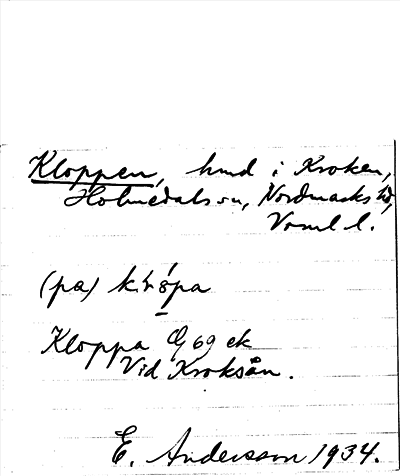 Kloppen, hmd i Kroken,
Holmedals sn, Nordmarks hd,
Vrml l.
(pa)
Kloppa Eg 69 ek
Vid Kroksån.
E. Andersson 1934.